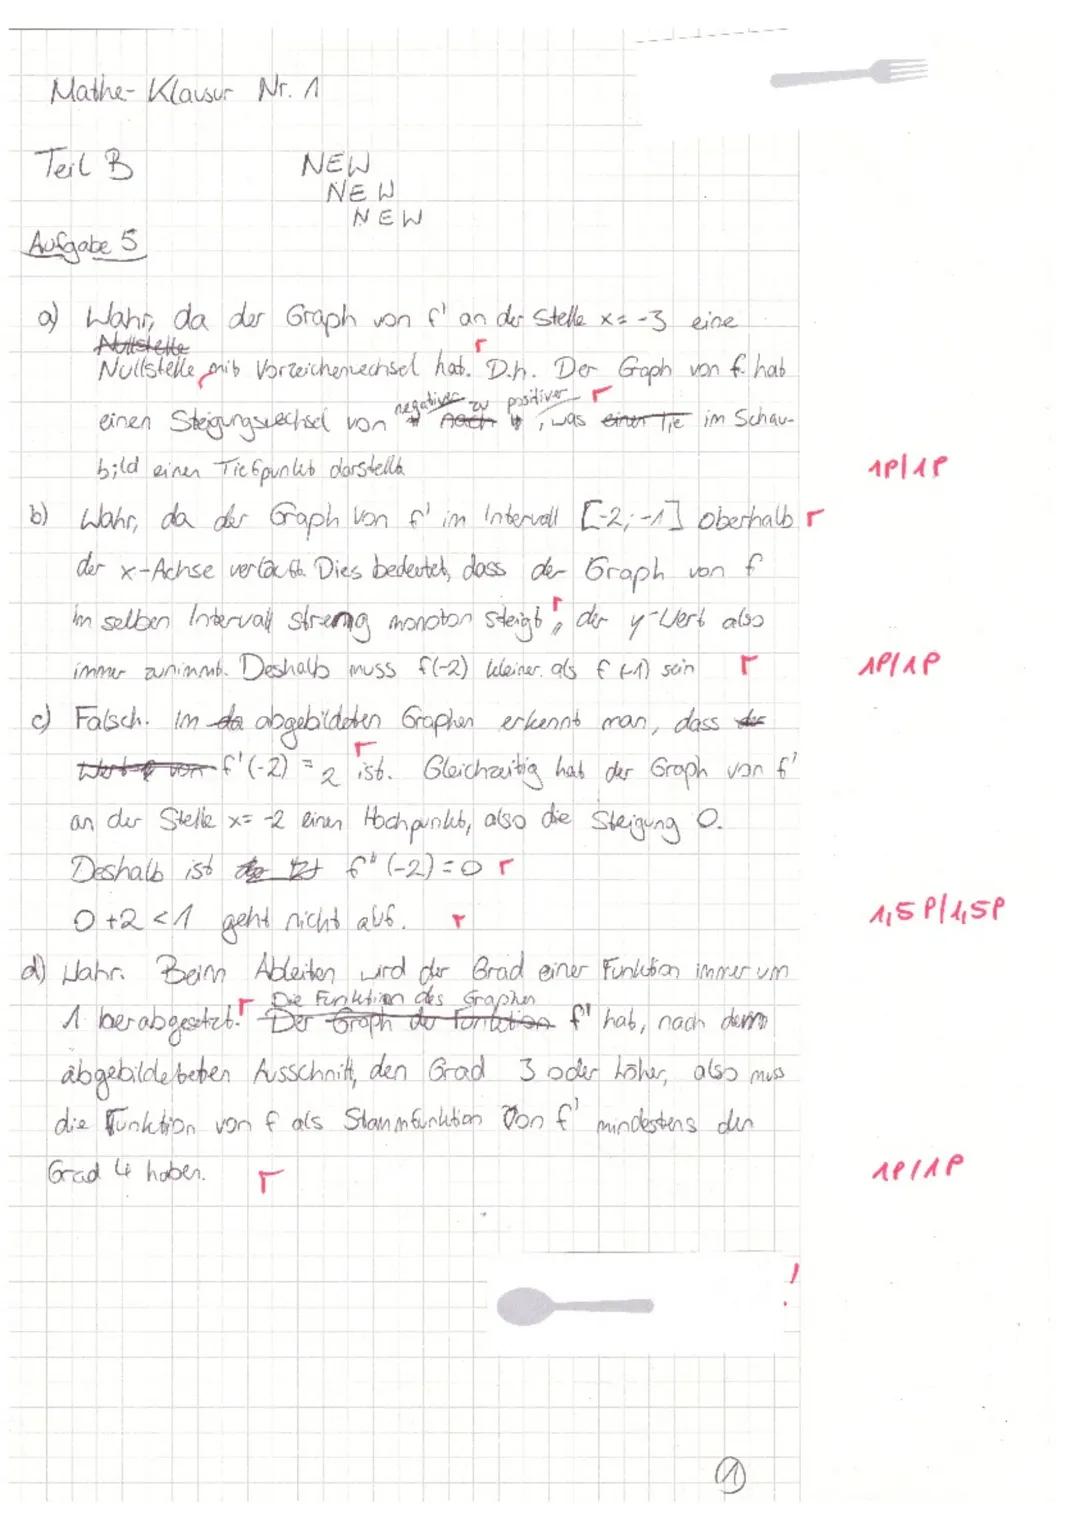 Mathe-Klausur Nr. 1
Teil B
NEW
NEW
NEW
Aufgabe 5
a) Wahr, da der Graph von f' an der Stelle x = -3 eine
Nullstelle
Nullstelle mit Vorzeichenwechsel hat. D.h. Der Graph von f hat
negativer zu positiver
einen Steigungswechsel von nach , was einen Tie im Schau-
bild einen Tiefpunkt darstellt
1P/1P
b) Wahr, da der Graph von f' im Intervall [-2; -1] oberhalb
der x-Achse verläuft. Dies bedeutet, dass der Graph von f
im selben Intervall streng monoton steigt, der y-Wert also
immer zunimmt. Deshalb muss f(-2) kleiner als f(-1) sein
1P/1P
c) Falsch. Im da abgebildeten Graphen erkennt man, dass der
Wert von f'(-2) = 2 ist. Gleichzeitig hat der Graph von f'
an der Stelle x = -2 einen Hochpunkt, also die Steigung 0.
Deshalb ist f''(-2) = 0
0 + 2 < 1 geht nicht auf.
1,5P/1,5P
d) Wahr. Beim Ableiten wird der Grad einer Funktion immer um
Die Funktion des Graphen
1 herabgesetzt. Der Graph der Funktion f' hat, nach dem
abgebildeteten Ausschnitt, den Grad 3 oder höher, also muss
die Funktion von f als Stammfunktion von f' mindestens den
Grad 4 haben.
1P/1P
!
1